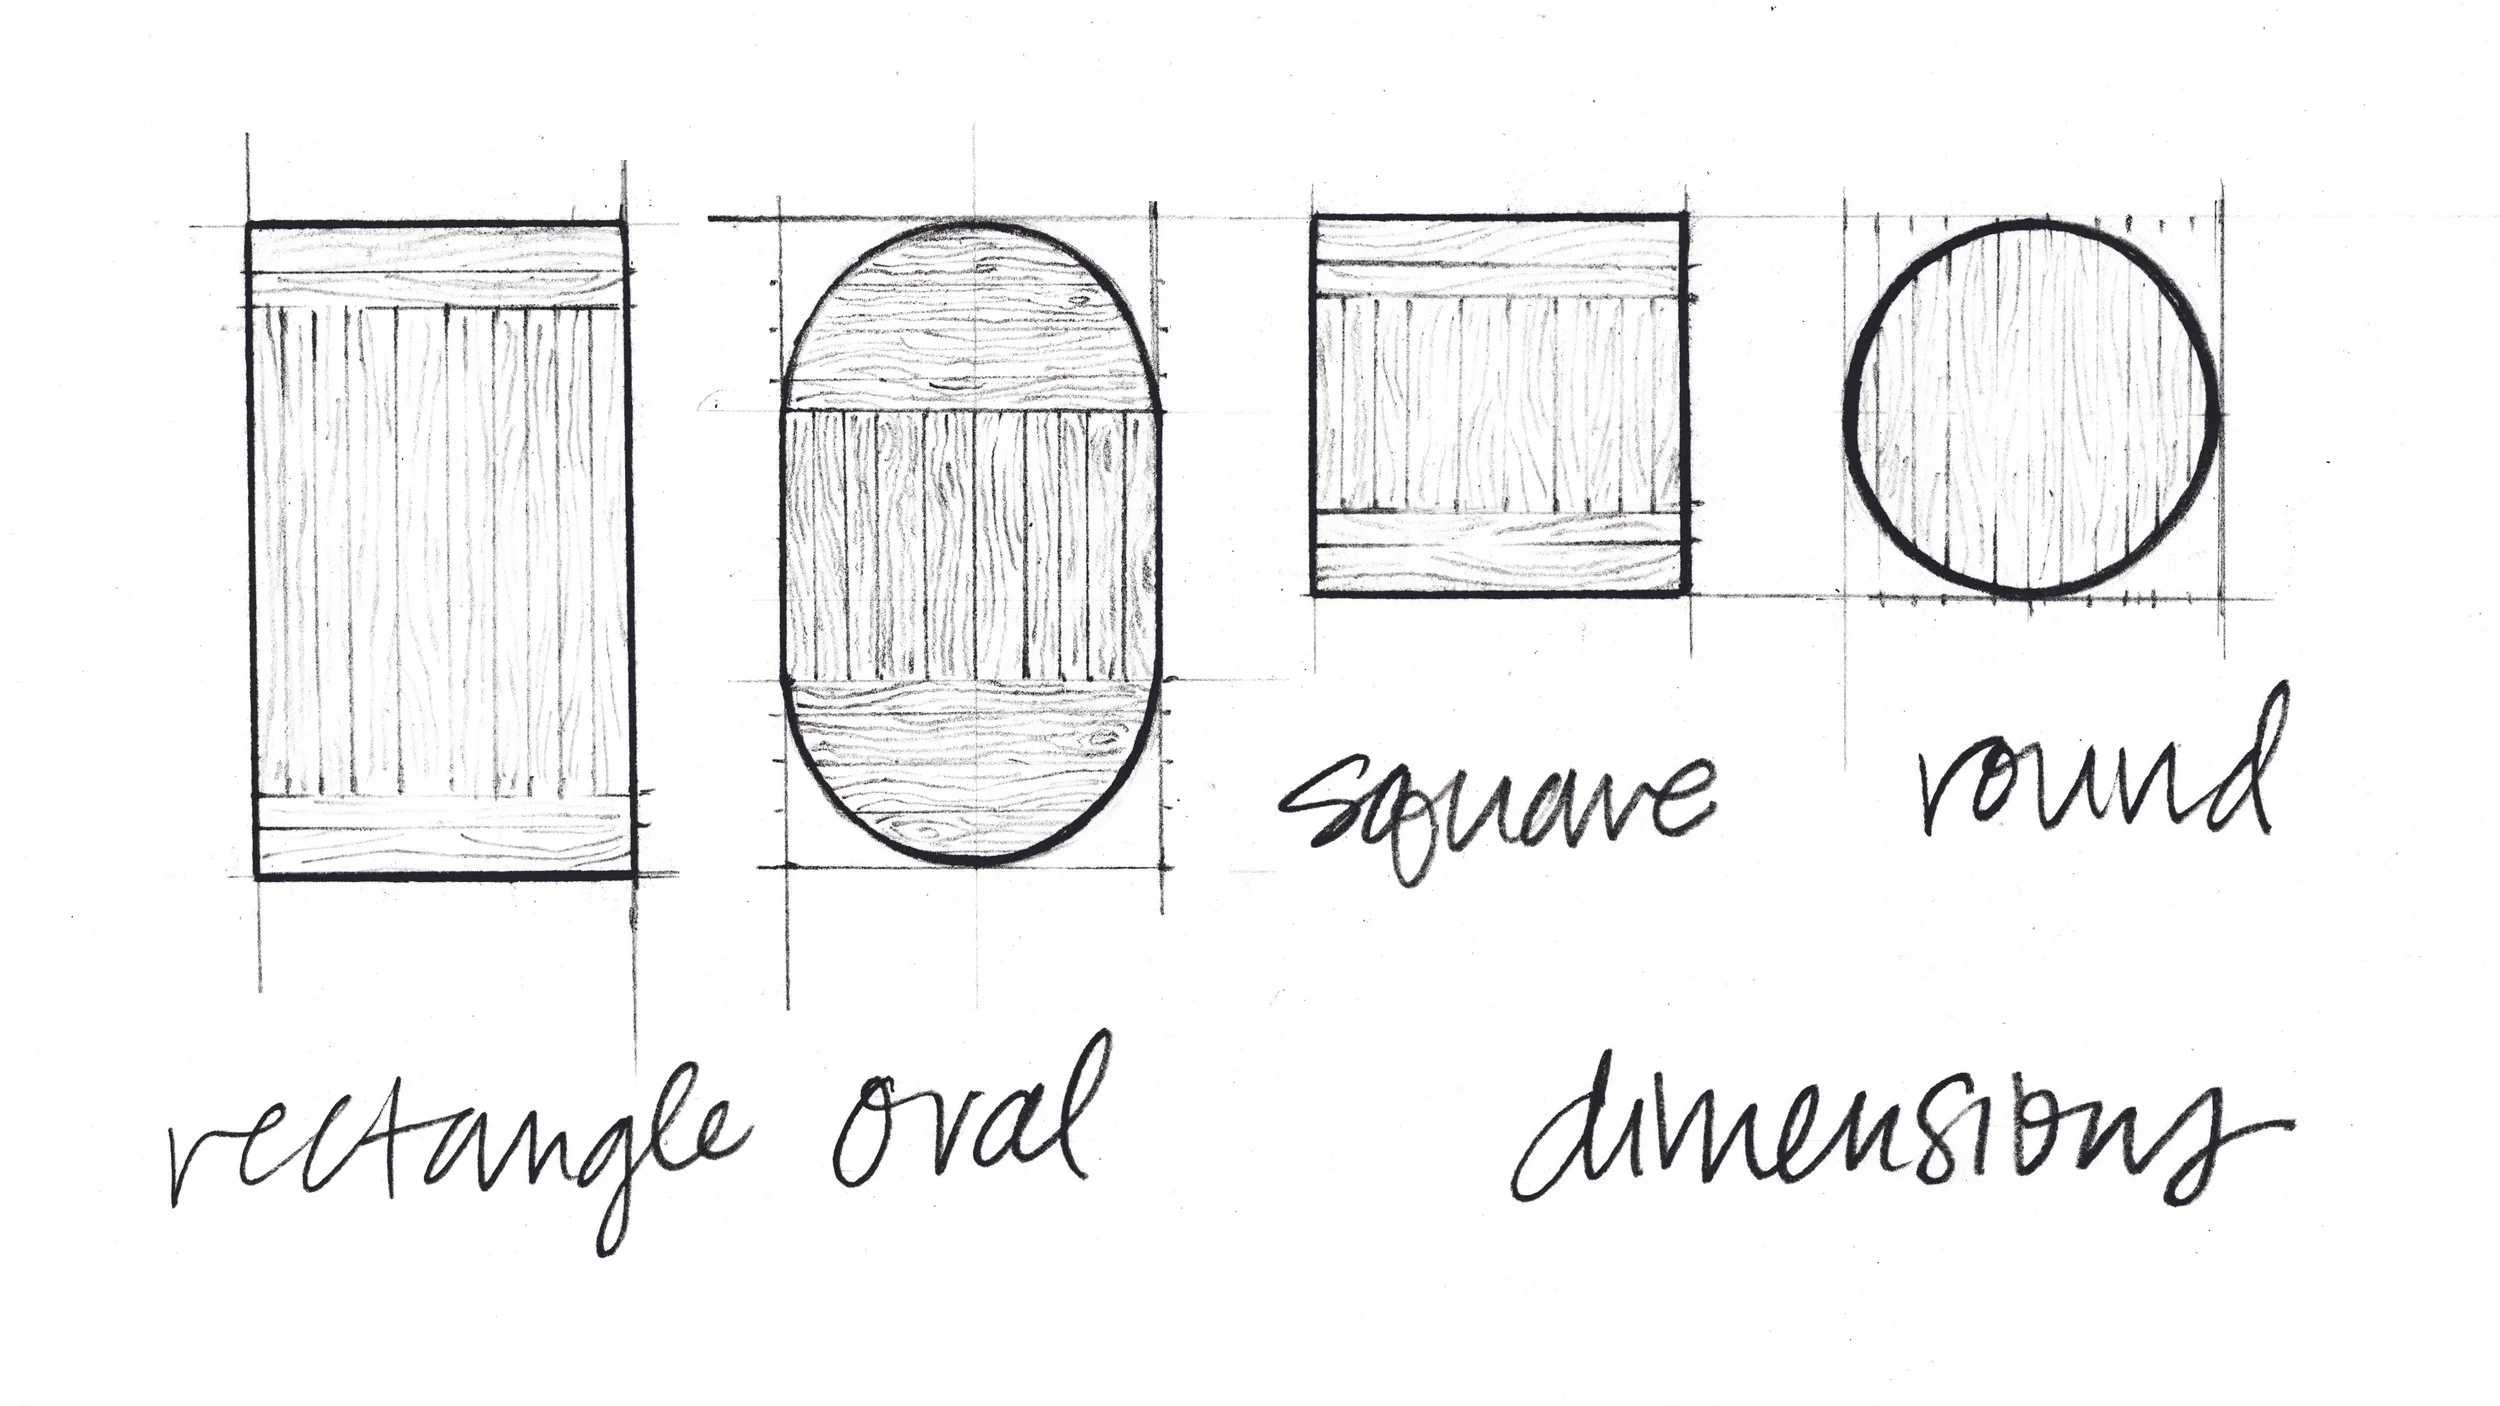 square round
rectangle oval dimensions